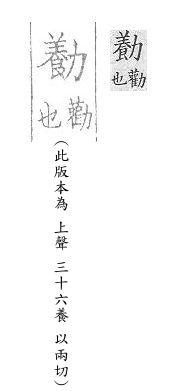 勸也
勸也（此版本為 上聲 三十六養 以兩切）